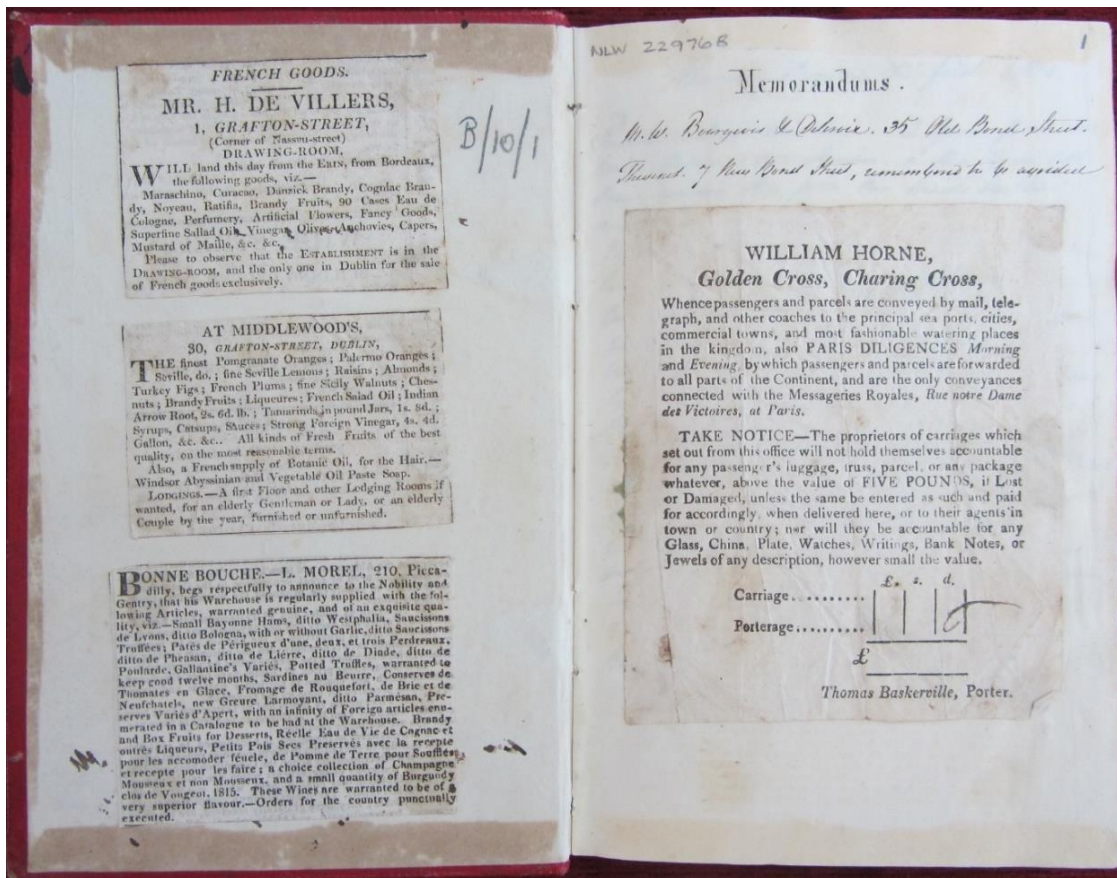 FRENCH GOODS.
MR. H. DE VILLERS,
1, GRAFTON-STREET,
(Corner of Nassau-street)
DRAWING-ROOM,
WILL land this day from the ERIN, from Bordeaux,
the following goods, viz.—
Maraschino, Curacao, Dantzick Brandy, Cogniac Bran-
dy, Noyeau, Ratifia, Brandy Fruits, 90 Cases Eau de
Cologne, Perfumery, Artificial Flowers, Fancy Goods,
Superfine Sallad Oil, Vinegar, Olives, Anchovies, Capers,
Mustard of Maille, &c. &c.
Please to observe that the ESTABLISHMENT is in the
DRAWING-ROOM, and the only one in Dublin for the sale
of French goods exclusively.
B/10/1
AT MIDDLEWOOD'S,
30, GRAFTON-STREET, DUBLIN,
THE finest Pomgranate Oranges; Palermo Oranges;
Seville, do.; fine Seville Lemons; Raisins; Almonds;
Turkey Figs; French Plums; fine Sicily Walnuts; Ches-
nuts; Brandy Fruits; Liqueures; French Salad Oil; Indian
Arrow Root, 2s. 6d. lb.; Tamarinds, in pound Jars, 1s. 8d.;
Syrups, Catsups, Sauces; Strong Foreign Vinegar, 4s. 4d.
Gallon, &c. &c.. All kinds of Fresh Fruits of the best
quality, on the most reasonable terms.
Also, a French supply of Botanic Oil, for the Hair.—
Windsor Abyssinian and Vegetable Oil Paste Soap.
LODGINGS.—A first Floor and other Lodging Rooms if
wanted, for an elderly Gentleman or Lady, or an elderly
Couple by the year, furnished or unfurnished.
BONNE BOUCHE.—L. MOREL, 210, Picca-
dilly, begs respectfully to announce to the Nobility and
Gentry, that his Warehouse is regularly supplied with the fol-
lowing Articles, warranted genuine, and of an exquisite qua-
lity, viz.—Small Bayonne Hams, ditto Westphalia, Saucissons
de Lyons, ditto Bologna, with or without Garlic, ditto Saucissons
Truffées; Patés de Périgueux d'une, deux, et trois Perdreaux,
ditto de Pheasan, ditto de Liérre, ditto de Dinde, ditto de
Poularde, Gallantine's Variés, Potted Truffles, warranted to
keep good twelve months, Sardines au Beurre, Conserves de
Thomates en Glace, Fromage de Rouquefort, de Brie et de
Neufchatels, new Greure Larmoyant, ditto Parmésan, Pre-
serves Variés d'Apert, with an infinity of Foreign articles enu-
merated in a Catalogue to be had at the Warehouse. Brandy
and Box Fruits for Desserts, Réelle Eau de Vie de Cognac et
outrés Liqueurs, Petits Pois Secs Preservés avec la recepte
pour les accomoder fécule, de Pomme de Terre pour Soufflés,
et recepte pour les faire; a choice collection of Champagne
Mousseux et non Mousseux, and a small quantity of Burgundy
clos de Vougeot, 1815. These Wines are warranted to be of a
very superior flavour.—Orders for the country punctually
executed.
NLW 22976B
1
Memorandums.
35 Old Bond Street.
7 New Bond Street, remembered to be avoided
WILLIAM HORNE,
Golden Cross, Charing Cross,
Whence passengers and parcels are conveyed by mail, tele-
graph, and other coaches to the principal sea ports, cities,
commercial towns, and most fashionable watering places
in the kingdom, also PARIS DILIGENCES Morning
and Evening, by which passengers and parcels are forwarded
to all parts of the Continent, and are the only conveyances
connected with the Messageries Royales, Rue notre Dame
des Victoires, at Paris.
TAKE NOTICE—The proprietors of carriages which
set out from this office will not hold themselves accountable
for any passenger's luggage, truss, parcel, or any package
whatever, above the value of FIVE POUNDS, if Lost
or Damaged, unless the same be entered as such and paid
for accordingly, when delivered here, or to their agents in
town or country; nor will they be accountable for any
Glass, China, Plate, Watches, Writings, Bank Notes, or
Jewels of any description, however small the value.
£. s. d.
Carriage..........
Porterage..........
£
Thomas Baskerville, Porter.